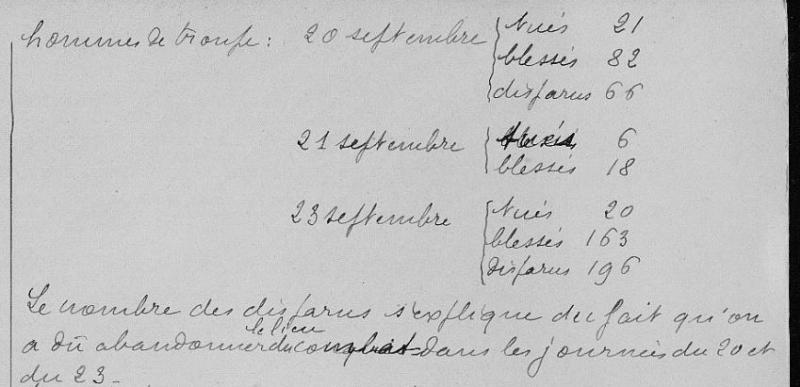 hommes de troupe : 20 septembre tués 21
blessés 82
disparus 66
21 septembre tués 6
blessés 18
23 septembre tués 20
blessés 163
disparus 196
Le nombre des disparus s'explique du fait qu'on
a dû abandonner le lieu du combat dans les journées du 20 et
du 23 -